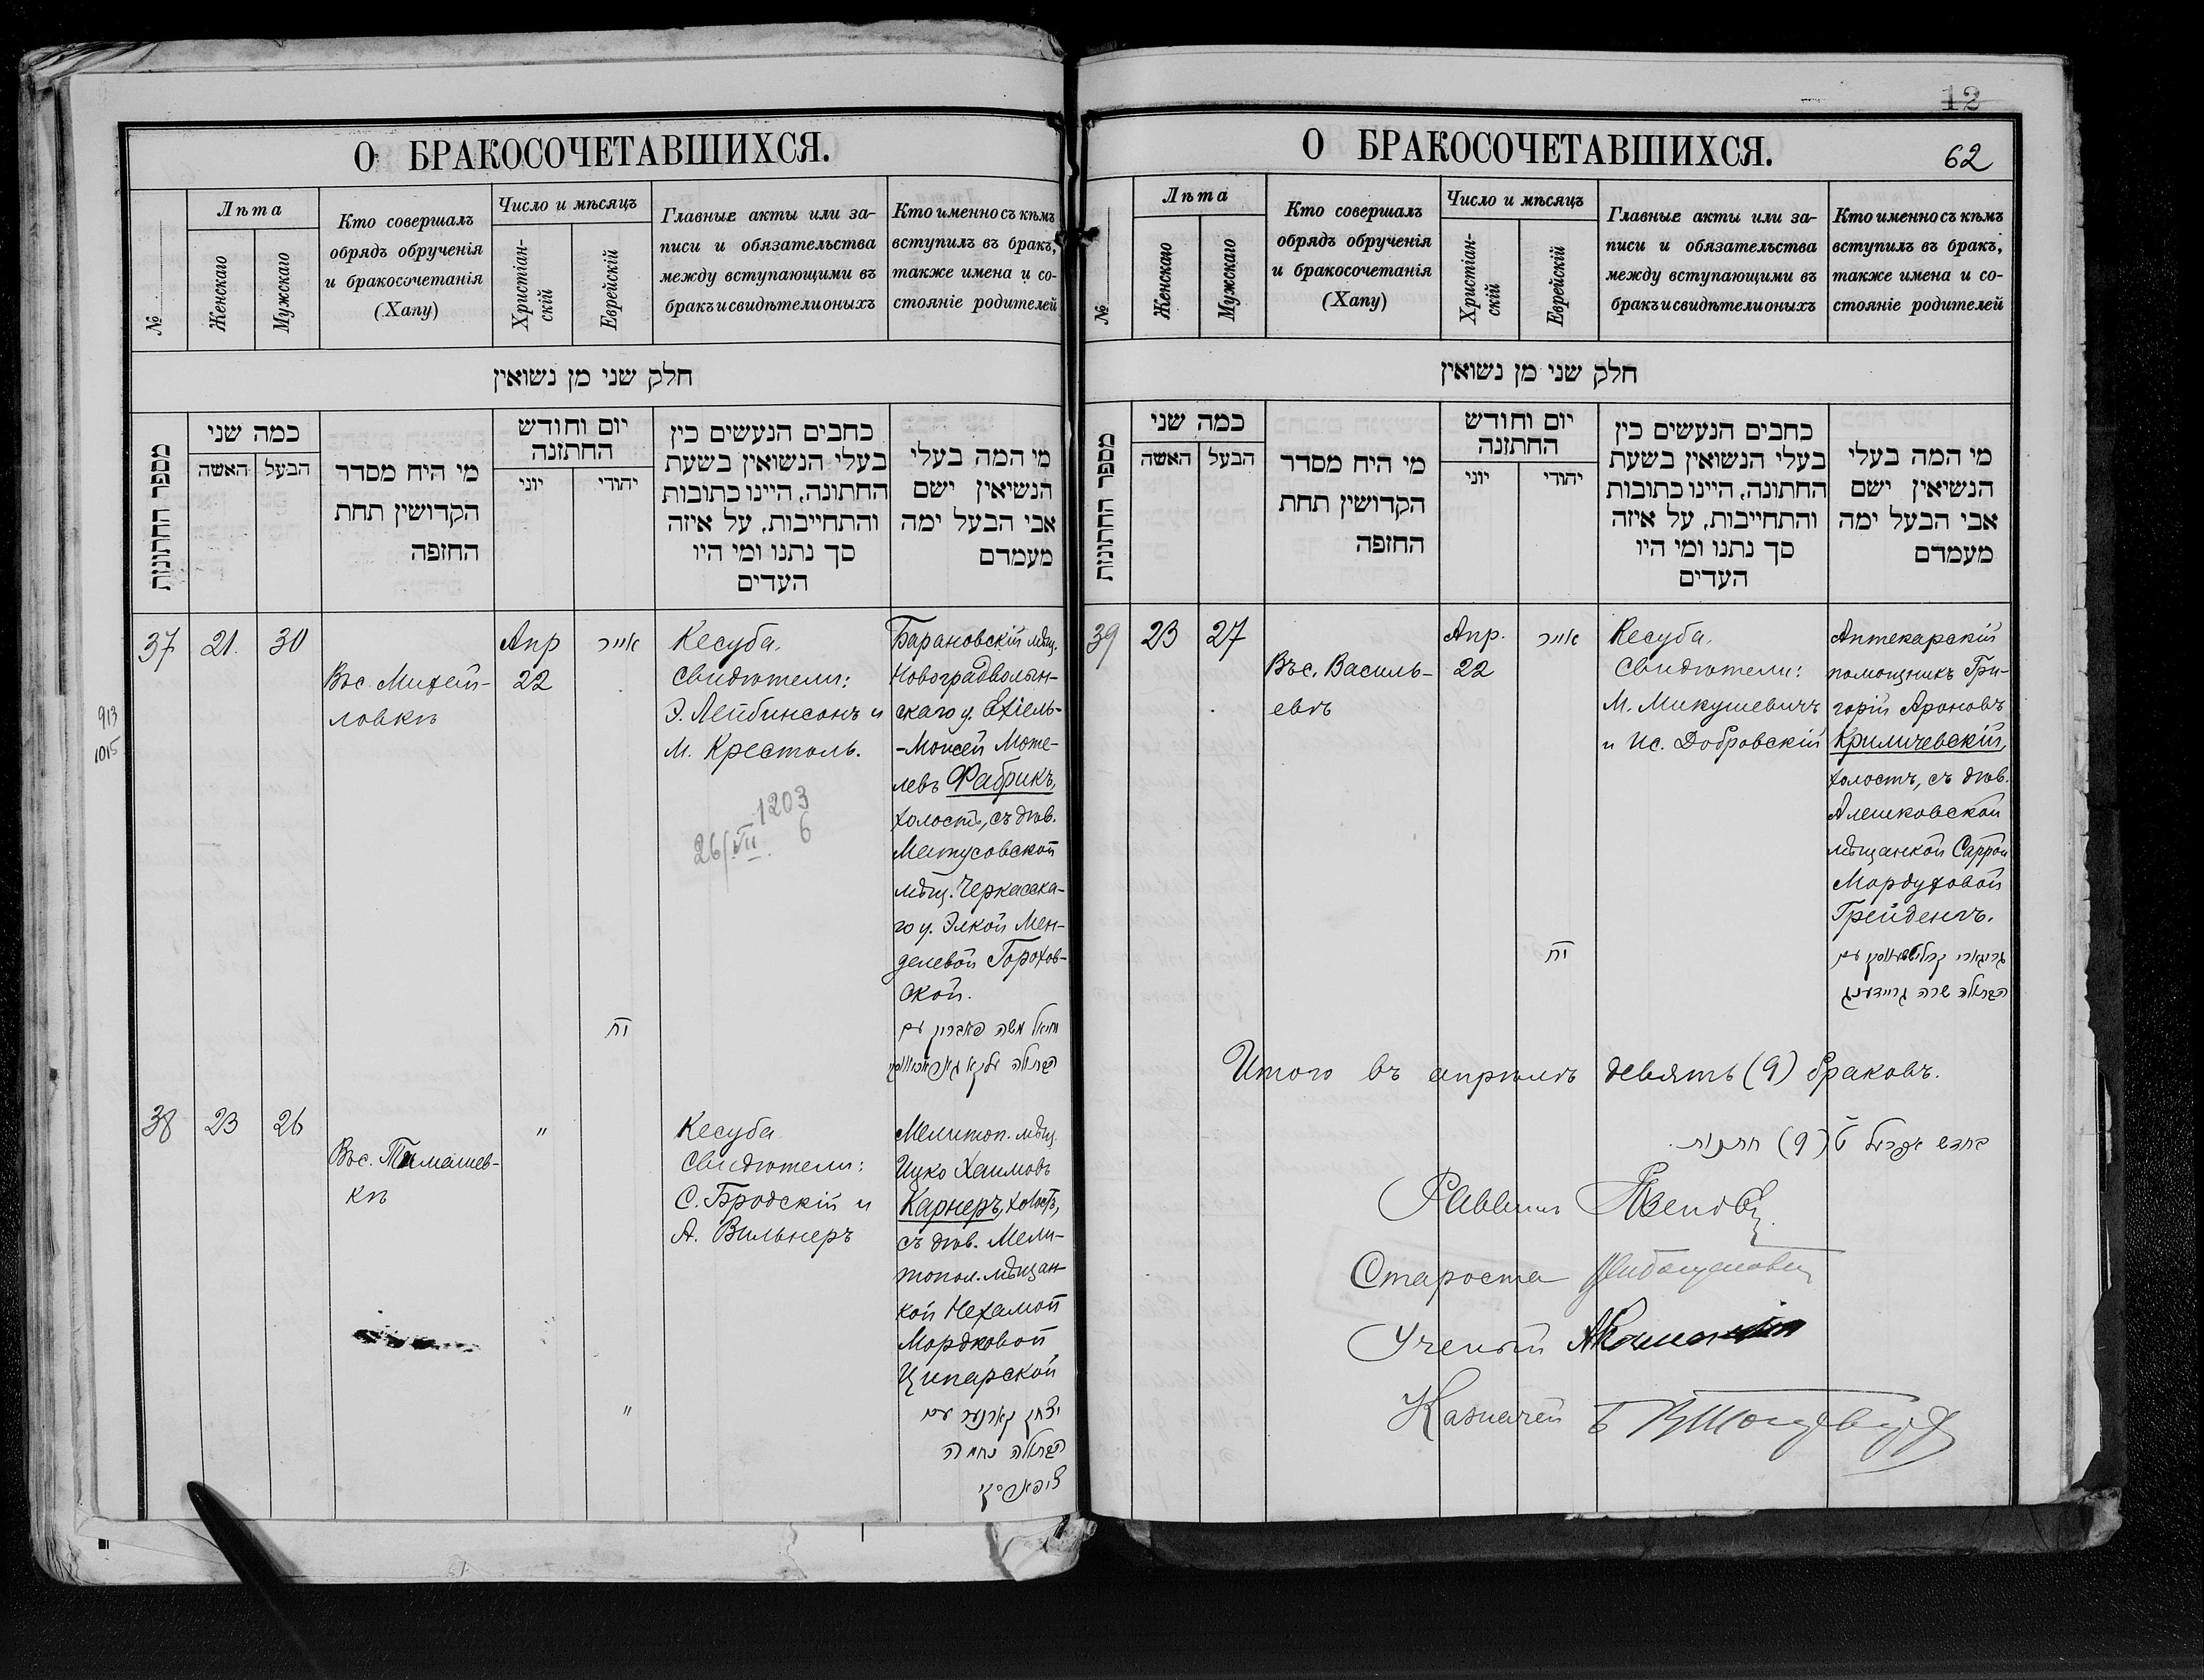 О БРАКОСОЧЕТАВШИХСЯ.
№
Лѣта
Женскаго
Мужскаго
Кто совершалъ
обрядъ обрученія
и бракосочетанія
(Хапу)
Число и мѣсяцъ
Христіан-
скій
Еврейскій
Главные акты или за-
писи и обязательства
между вступающими въ
бракъ и свидѣтели оныхъ
Кто именно съ кѣмъ
вступилъ въ бракъ,
также имена и со-
стояніе родителей
חלק שני מן נשואין
מספר החתונות
כמה שני
האשה
הבעל
מי היח מסדר
הקדושין תחת
החזפה
יום וחודש
החתזנה
יוני
יהודי
כחבים הנעשים כין
בעלי הנשואין בשעת
החתונה, היינו כתובות
והתחייבות, על איזה
סך נתנו ומי היו
העדים
מי המה בעלי
הנשיאין ישם
אבי הבעל ימה
מעמדם
37
21.
30
Вос. Михай-
ловкѣ
Апр
22
אייר
Кесуба.
Свидѣтели:
Э. Лейбинсонъ и
М. Крестоль.
1203
26/VII. 6
Барановскій мѣщ.
Новоградволын-
скаго у. Ехіель-
-Мойсей Моте-
левъ Фабрикъ,
холостъ, съ дѣв.
Матусовской
мѣщ. Черкасска-
го у. Элкой Мен-
делевой Горохов-
ской.
יח
הבתולה
913
1015
38
23
26
Вос. Тимашев-
кѣ
"
Кесуба
Свидѣтели:
С. Бродскій и
А. Вильнеръ
Мелитоп. мѣщ.
Ицко Хаимовъ
Карнеръ, холостъ,
съ дѣв. Мели-
топол. мѣщан-
кой Нехамой
Мордковой
Ципарской
"
יצחק קארנער עם
הבתולה נחמה
12
О БРАКОСОЧЕТАВШИХСЯ.
62
№
Лѣта
Женскаго
Мужскаго
Кто совершалъ
обрядъ обрученія
и бракосочетанія
(Хапу)
Число и мѣсяцъ
Христіан-
скій
Еврейскій
Главные акты или за-
писи и обязательства
между вступающими въ
бракъ и свидѣтели оныхъ
Кто именно съ кѣмъ
вступилъ въ бракъ,
также имена и со-
стояніе родителей
חלק שני מן נשואין
מספר החתונות
כמה שני
האשה
הבעל
מי היח מסדר
הקדושין תחת
החזפה
יום וחודש
החתזנה
יוני
יהודי
כחבים הנעשים כין
בעלי הנשואין בשעת
החתונה, היינו כתובות
והתחייבות, על איזה
סך נתנו ומי היו
העדים
מי המה בעלי
הנשיאין ישם
אבי הבעל ימה
מעמדם
39
23
27
Въс. Василь-
евѣ
Апр.
22
אייר
Кесуба.
Свидѣтели:
М. Микушевичъ
и Ис. Добровскій
Аптекарскій
помощникъ Гри-
горій Ароновъ
Криличевскій,
холостъ, съ дѣв.
Алешковской
мѣщанкой Саррой
Мордуховой
Грейденгъ.
יח
הבתולה שרה גריידענג
Итого въ апрѣлѣ девять (9) браковъ.
בחדש אפריל ט (9) חתנות.
Раввинъ
Староста
Ученый
Казначей